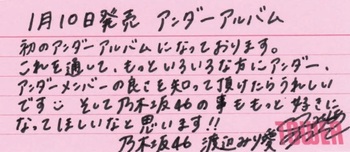 1月10日発売 アンダーアルバム
初のアンダーアルバムになっております。
これを通して、もっといろいろな方にアンダー、
アンダーメンバーの良さを知って頂けたらうれしい
です そして乃木坂46の事をもっと好きに
なってほしいなと思います!!
乃木坂46 渡辺みり愛
TOWER